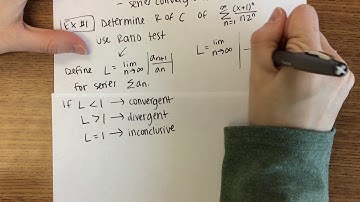 - series converg
Ex #1 Determine R of C of ∞ Σ n=1 (x+1)ⁿ / n2ⁿ
use Ratio test
Define L = lim n→∞ | an+1 / an |
for series Σan.
L = lim n→∞ |
if L < 1 → convergent
L > 1 → divergent
L = 1 → inconclusive